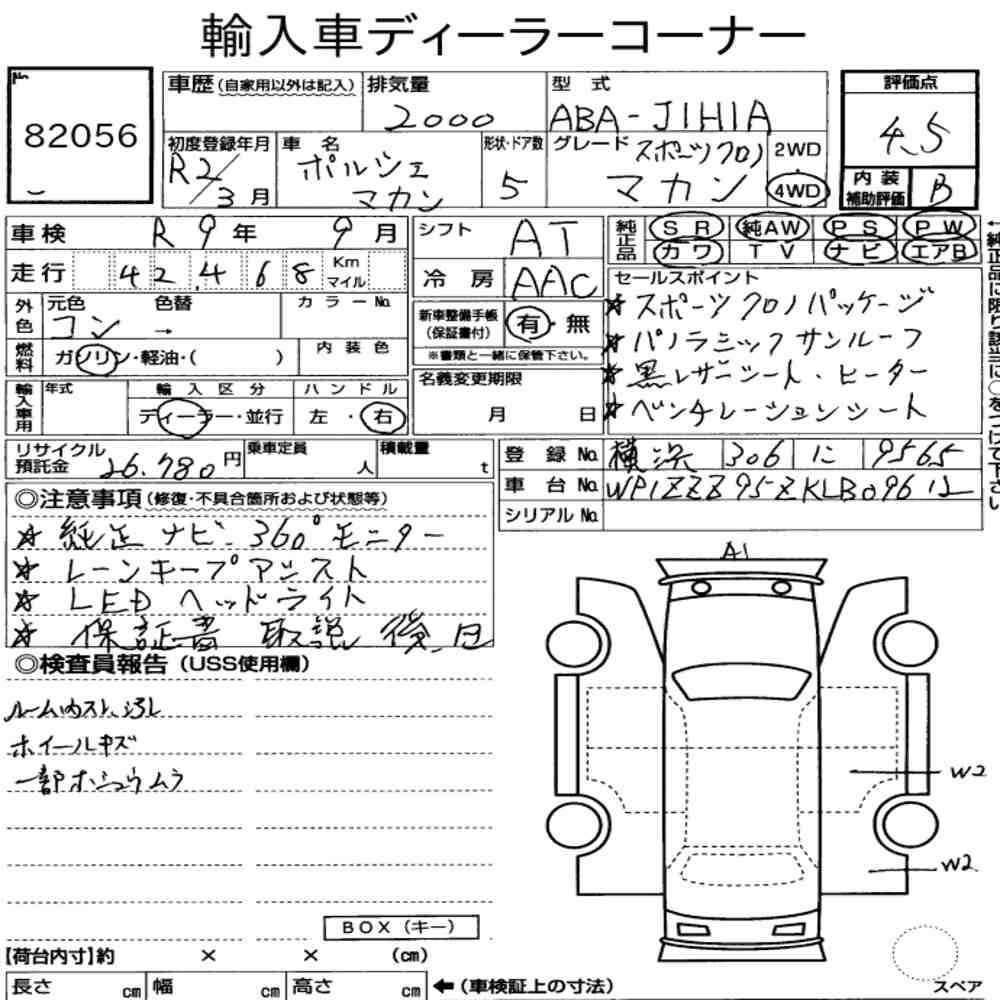 輸入車ディーラーコーナー
No.
82056
車歴(自家用以外は記入)
排気量
2000
型式
ABA-J1H1A
評価点
4.5
初度登録年月
R2/3月
車名
ポルシェ
マカン
形状・ドア数
5
グレード
スポーツクロノ
マカン
2WD
4WD
内装
補助評価
B
車検 R9年 9月
走行 42,468 Km
マイル
シフト
AT
冷房
AAC
純正品
SR 純AW PS PW
カワ TV ナビ エアB
←純正品に限り該当に○をつけて下さい
外色
元色 色替 カラーNo.
コン →
燃料
ガソリン・軽油・( )
内装色
新車整備手帳
(保証書付)
有・無
※書類と一緒に保管下さい。
セールスポイント
☆スポーツクロノパッケージ
☆パノラミックサンルーフ
☆黒レザーシート・ヒーター
☆ベンチレーションシート
輸入車用
年式
輸入区分
ディーラー・並行
ハンドル
左・右
名義変更期限
月 日
リサイクル
預託金
26.780円
乗車定員
人
積載量
t
登録No. 横浜 306 に 9565
車台No. WP1ZZZ95ZKLB09612
シリアルNo.
◎注意事項(修復・不具合箇所および状態等)
☆純正ナビ 360°モニター
☆レーンキープアシスト
☆LEDヘッドライト
☆保証書 取説 後日
◎検査員報告(USS使用欄)
ルーム内スレ、汚レ
ホイールキズ
一部ホシュウムラ
A1
W2
W2
BOX(キー)
【荷台内寸】約 × × (cm)
長さ cm 幅 cm 高さ cm ←(車検証上の寸法)
スペア